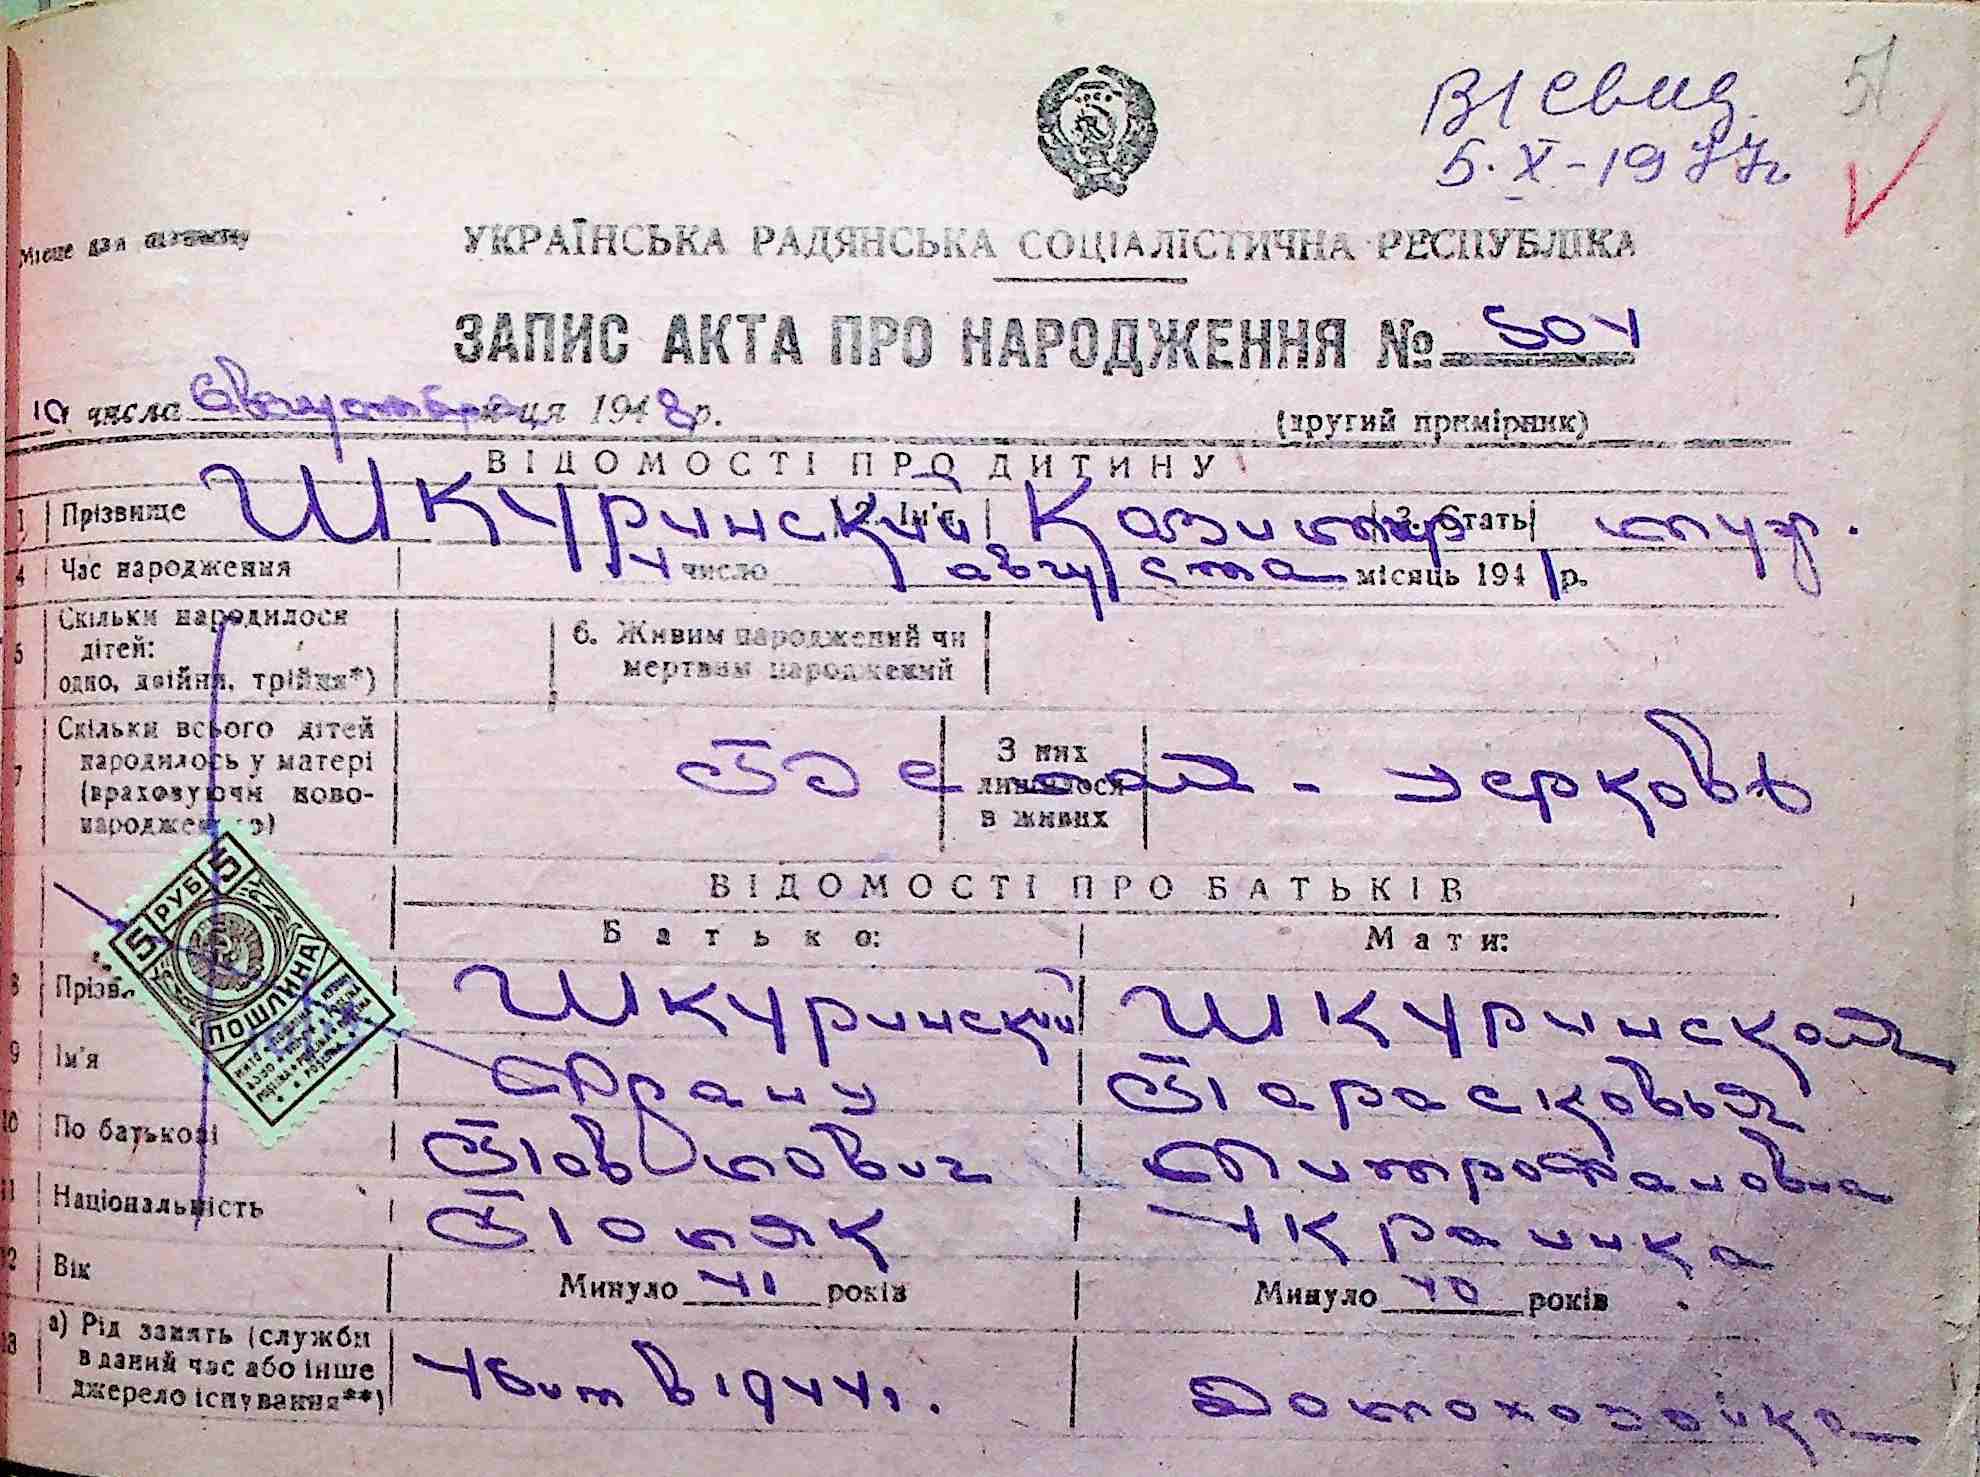 ВІ свид.
5. X - 1977 г
51
Місце для відмітку
УКРАЇНСЬКА РАДЯНСЬКА СОЦІАЛІСТИЧНА РЕСПУБЛІКА
ЗАПИС АКТА ПРО НАРОДЖЕННЯ № 504
10 числа августа м-ця 1948 р.
(другий примірник)
ВІДОМОСТІ ПРО ДИТИНУ
1 Прізвище Шкуринский 2. Ім'я Казимир 3. Стать муж.
4 Час народження 4 число августа місяць 1941 р.
5 Скільки народилося дітей: одно, двійня, трійня*) 6. Живим народжений чи мертвим народжений
7 Скільки всього дітей народилось у матері (враховуючи новонародженого) З них лишилося в живих
церковь
ВІДОМОСТІ ПРО БАТЬКІВ
Батько: Мати:
8 Прізв. Шкуринский Шкуринская
9 Ім'я Франц Парасковья
10 По батькові Павлович Митрофановна
11 Національність Поляк Украинка
12 Вік Минуло 41 років Минуло 40 років
13 а) Рід занять (служби в даний час або інше джерело існування**) Убит в 1944 г. Домохозяйка
5 РУБ 5
ПОШЛИНА